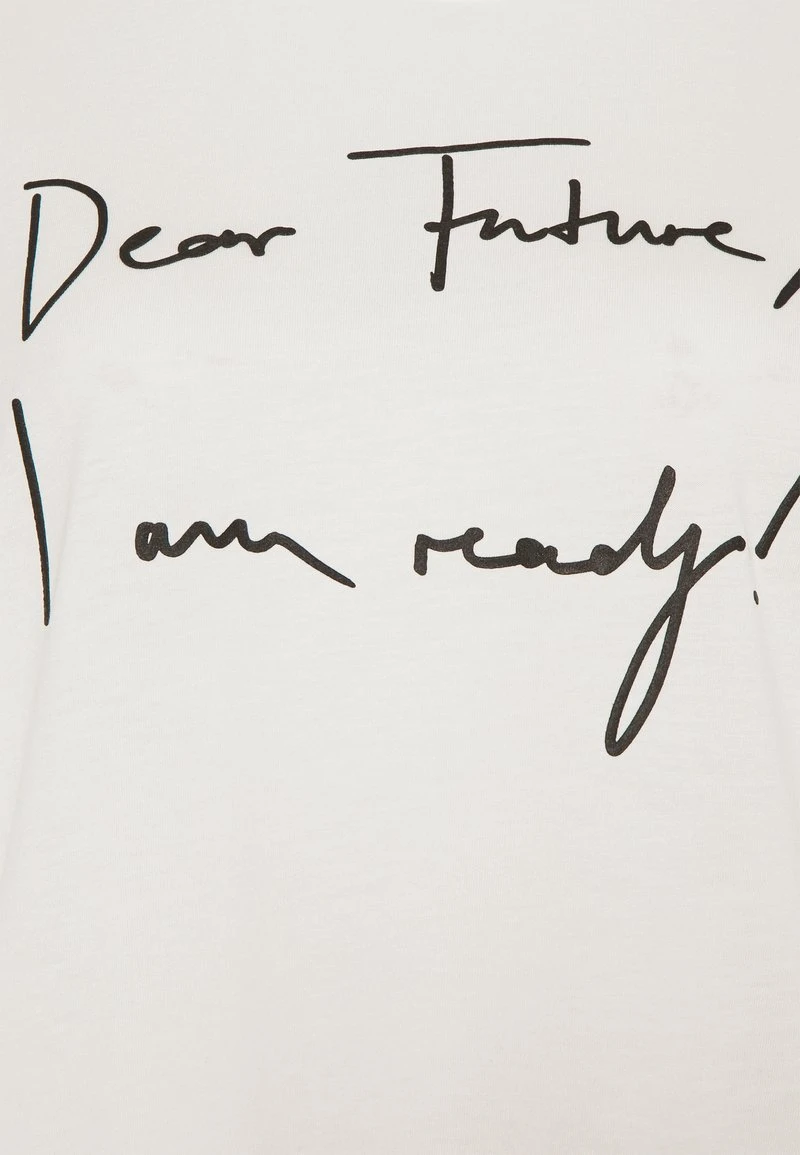 Dear Future,
I am ready!